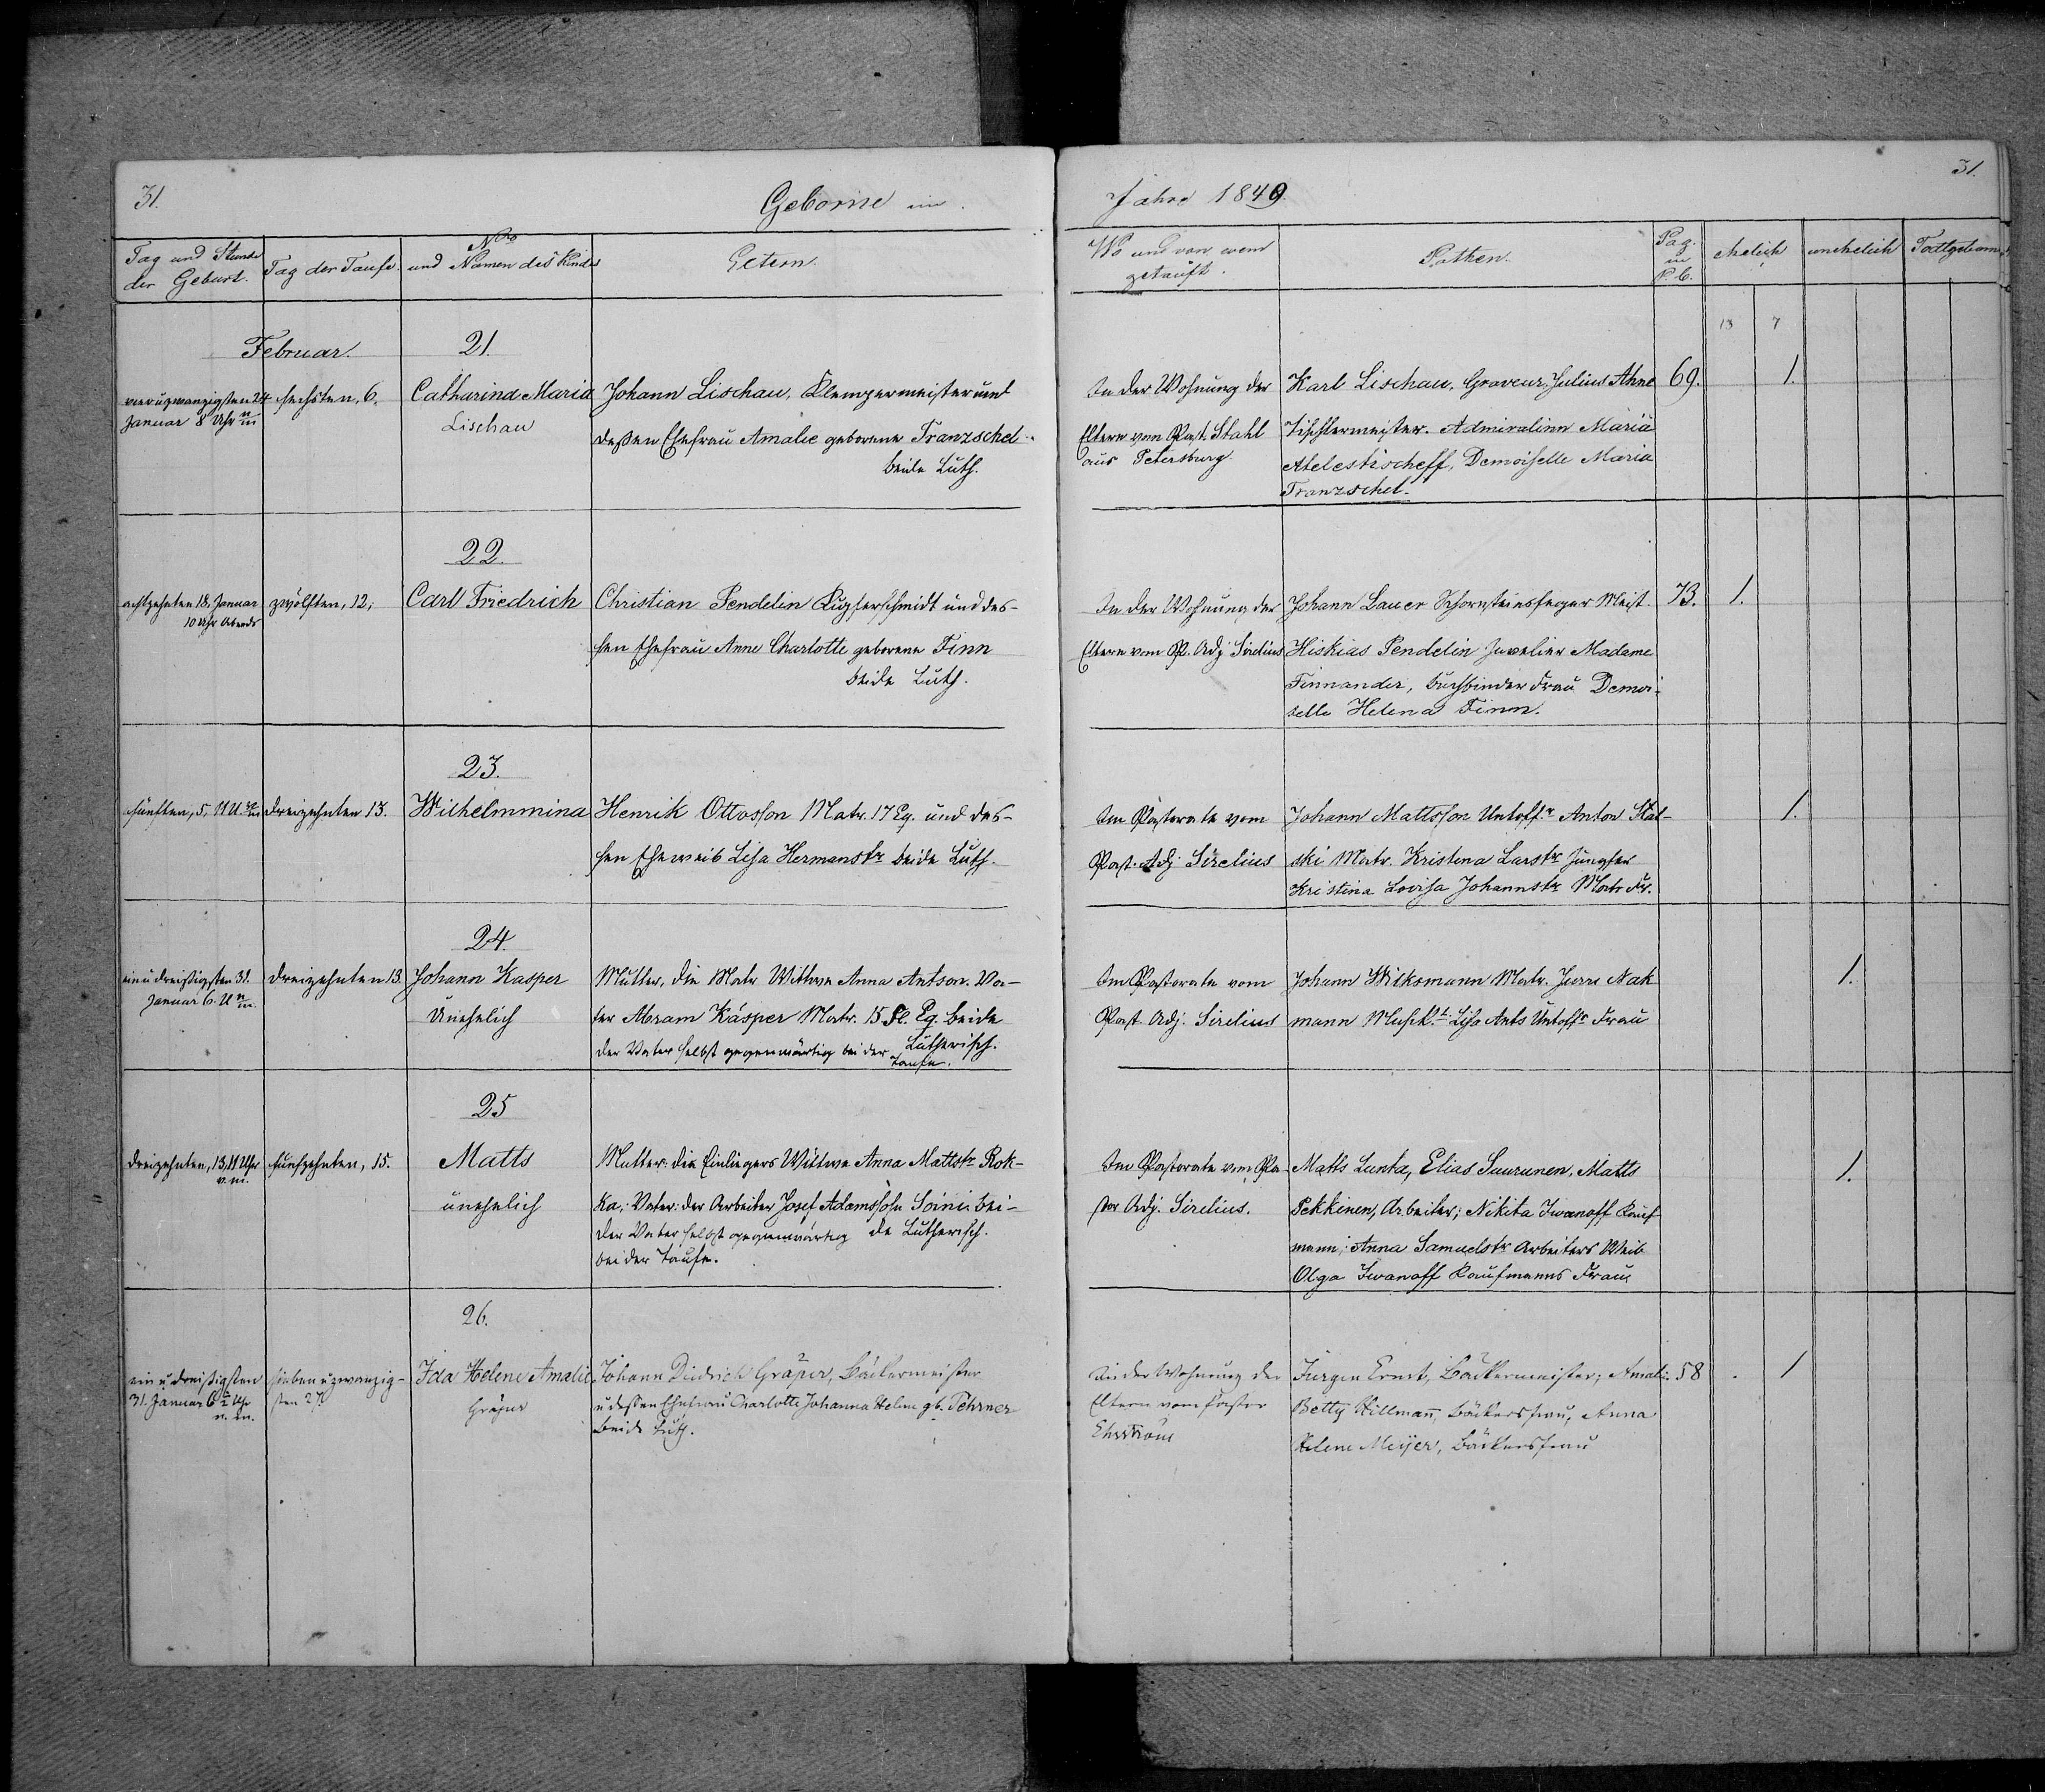 31.
Geborne im
Jahre 1849.
31.
Tag und Stunde der Geburt.
Tag der Taufe.
Nro und Namen des Kindes
Eltern.
Wo und von wem getauft.
Pathen.
Pag. in
ehelich
unehelich
Todtgeboren
13 7
Februar.
21.
vieruzwanzigsten 24
Januar 8 Uhr
sechsten, 6.
Catharina Maria
Lischau
Johann Lischau, Klempermeister und
deßen Ehefrau Amalie geborene Franzschel.
beide Luth.
In der Wohnung der
Eltern vom Past. Stahl
aus Petersburg.
Karl Lischau, Graveur, Julius Ahne
Tischlermeister. Admiralinn Maria
Demoiselle Maria
Franzschel.
69.
1.
22.
achtzehnten 18. Januar
10 Uhr Abends
zwölften, 12,
Carl Friedrich
Christian Pendelin Kupferschmidt und des-
sen Ehefrau Anne Charlotte geborene Finn
beide Luth.
In der Wohnung der
Eltern vom P. Adj Sirelius
Johann Lauer Schornsteinfeger Meist.
Hiskias Pendelin Juvelier Madame
Finnander, buchbinder Frau Demoi-
selle Helena Finn.
73.
1.
23.
fünften, 5,
dreizehnten 13.
Wilhelmmina
Henrik Ottosson Matr. 17 Eq. und des-
sen Eheweib Lisa Hermanstr beide Luth.
Im Pastorate vom
Past. Adj Sirelius
Johann Mattsson Untoffr Anton Stal-
ski Matr. Kristina Larstr Jungfer
Kristina Lovisa Johannstr Matr Fr.
1.
24.
einudreißigsten 31.
Januar 6. U
dreizehnten 13.
Johann Kasper
Unehelich
Mutter, die Matr Wittwe Anna Antson. Va-
ter Abram Kasper Matr. 15 Fl. Eq. beide
Lutherisch.
der Vater selbst gegenwärtig bei der
Taufe.
Im Pastorate vom
Past. Adj. Sirelius
Johann Wilksmann Matr. Jurri Nak
mann Lisa Ants Untoffr Frau
1.
25
dreizehnten, 13, 11 Uhr
v.m.
fünfzehnten, 15.
Matts
unehelich
Mutter: die Einliegers Wittwe Anna Mattstr Rok-
ka,: Vater: der Arbeiter Josef Adamssohn Soini bei-
de Lutherisch.
der Vater selbst gegenwärtig
bei der Taufe.
Im Pastorate vom Pa-
stor Adj. Sirelius.
Matts Lunta, Elias Suurunen, Matts
Pekkinen, Arbeiter; Nikita Iwanoff Kauf
mann; Anna Samuelstr Arbeiters Weib
Olga Iwanoff Kaufmanns Frau
1.
26.
ein u dreißigsten
31. Januar 6½ Uhr
sieben u zwanzig-
sten 27.
Ida Helene Amalie
Gräper
Johann Diedrich Gräper, Bäckermeister
u deßen Ehefrau Charlotte Johanna Helene gb. Fehrner
beide Luth.
In der Wohnung der
Eltern vom Pastor
Ehrström
Jürgen Ernst, Bäckermeister; Amalie
Betty Hillmann, Bäckersfrau, Anna
Helene Meyer, Bäckersfrau
58
1